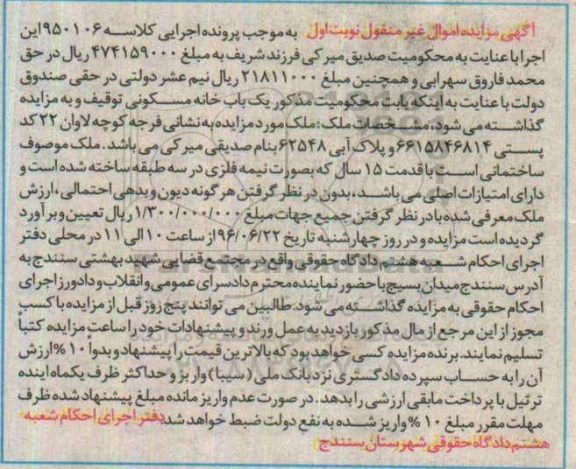 آگهی مزایده اموال غیر منقول نوبت اول به موجب پرونده اجرایی کلاسه ۹۵۰۱۰۶ این
اجرا با عنایت به محکومیت صدیق میرکی فرزند شریف به مبلغ ۴۷۴۱۵۹۰۰۰ ریال در حق
محمد فاروق سهرابی و همچنین مبلغ ۲۱۸۱۱۰۰۰ ریال نیم عشر دولتی در حقی صندوق
دولت با عنایت به اینکه بابت محکومیت مذکور یک باب خانه مسکونی توقیف و به مزایده
گذاشته می شود، مشخصات ملک: ملک مورد مزایده به نشانی فرجه کوچه لاوان ۲۲ کد
پستی ۶۶۱۵۸۴۶۸۱۴ و پلاک آبی ۶۲۵۴۸ بنام صدیقی میرکی می باشد. ملک موصوف
ساختمانی است با قدمت ۱۵ سال که بصورت نیمه فلزی در سه طبقه ساخته شده است و
دارای امتیازات اصلی می باشد، بدون در نظر گرفتن هر گونه دیون و بدهی احتمالی، ارزش
ملک معرفی شده با در نظر گرفتن جمیع جهات مبلغ ۱/۳۰۰/۰۰۰/۰۰۰ ریال تعیین و برآورد
گردیده است مزایده و در روز چهارشنبه تاریخ ۹۶/۰۶/۲۲ از ساعت ۱۰ الی ۱۱ در محلی دفتر
اجرای احکام شعبه هشتم دادگاه حقوقی واقع در مجتمع قضایی شهید بهشتی سنندج به
آدرس سنندج میدان بسیج با حضور نماینده محترم دادسرای عمومی و انقلاب و دادورز اجرای
احکام حقوقی به مزایده گذاشته می شود. طالبین می توانند پنج روز قبل از مزایده با کسب
مجوز از این مرجع از مال مذکور بازدید به عمل ورند و پیشنهادات خود را ساعت مزایده کتباً
تسلیم نمایند. برنده مزایده کسی خواهد بود که بالاترین قیمت را پیشنهاد و بدواً ۱۰% ارزش
آن را به حساب سپرده دادگستری نزد بانک ملی (سیبا) واریز و حداکثر ظرف یکماه اینده
ترتیل با پرداخت مابقی ارزشی را بدهد. در صورت عدم واریز مانده مبلغ پیشنهاد شده ظرف
مهلت مقرر مبلغ ۱۰% واریز شده به نفع دولت ضبط خواهد شد دفتر اجرای احکام شعبه
هشتم دادگاه حقوقی شهرستان سنندج